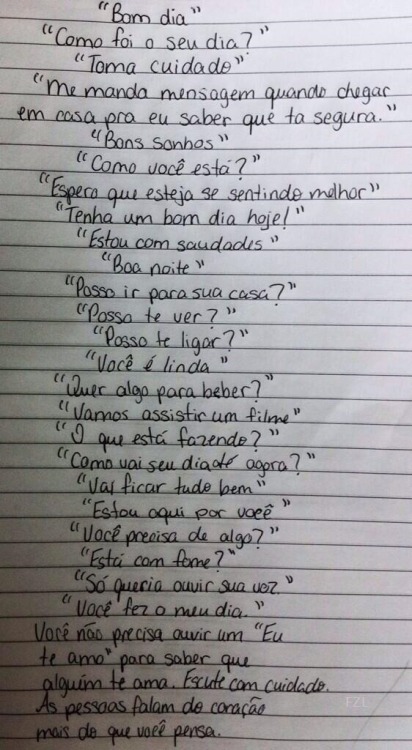 "Bom dia"
"Como foi o seu dia?"
"Toma cuidado"
"Me manda mensagem quando chegar
em casa pra eu saber que ta segura."
"Bons sonhos"
"Como você está?"
"Espero que esteja se sentindo melhor"
"Tenha um bom dia hoje!"
"Estou com saudades"
"Boa noite"
"Posso ir para sua casa?"
"Posso te ver?"
"Posso te ligar?"
"Você é linda"
"Quer algo para beber?"
"Vamos assistir um filme"
"O que está fazendo?"
"Como vai seu dia até agora?"
"Vai ficar tudo bem"
"Estou aqui por você"
"Você precisa de algo?"
"Está com fome?"
"Só queria ouvir sua voz."
"Você fez o meu dia."
Você não precisa ouvir um "Eu
te amo" para saber que
alguém te ama. Escute com cuidado.
As pessoas falam do coração
mais do que você pensa.
FZL